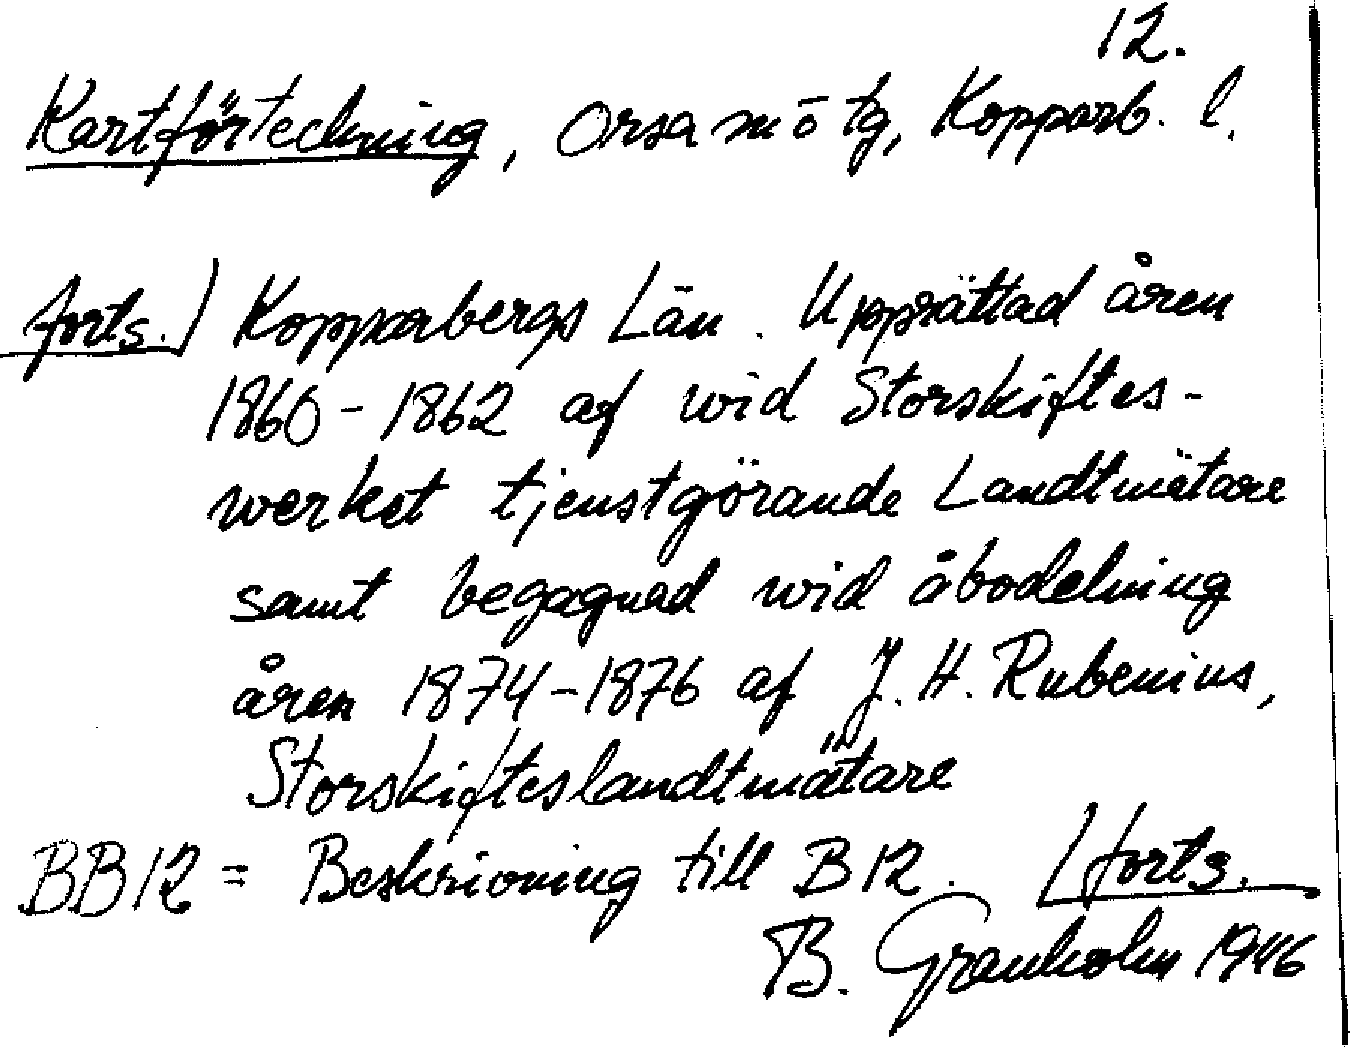 12.
Kartförteckning, Orsa m ō tg, Kopparb. l.
forts.) Kopparbergs Län. Upprättad åren
1860-1862 af wid Storskiftes-
werket tjenstgörande Landtmätare
samt begagnad wid åbodelning
åren 1874-1876 af J. H. Rubenius,
Storskifteslandtmätare
BB12 = Beskrivning till B12. (forts.
B. Granholm 1946